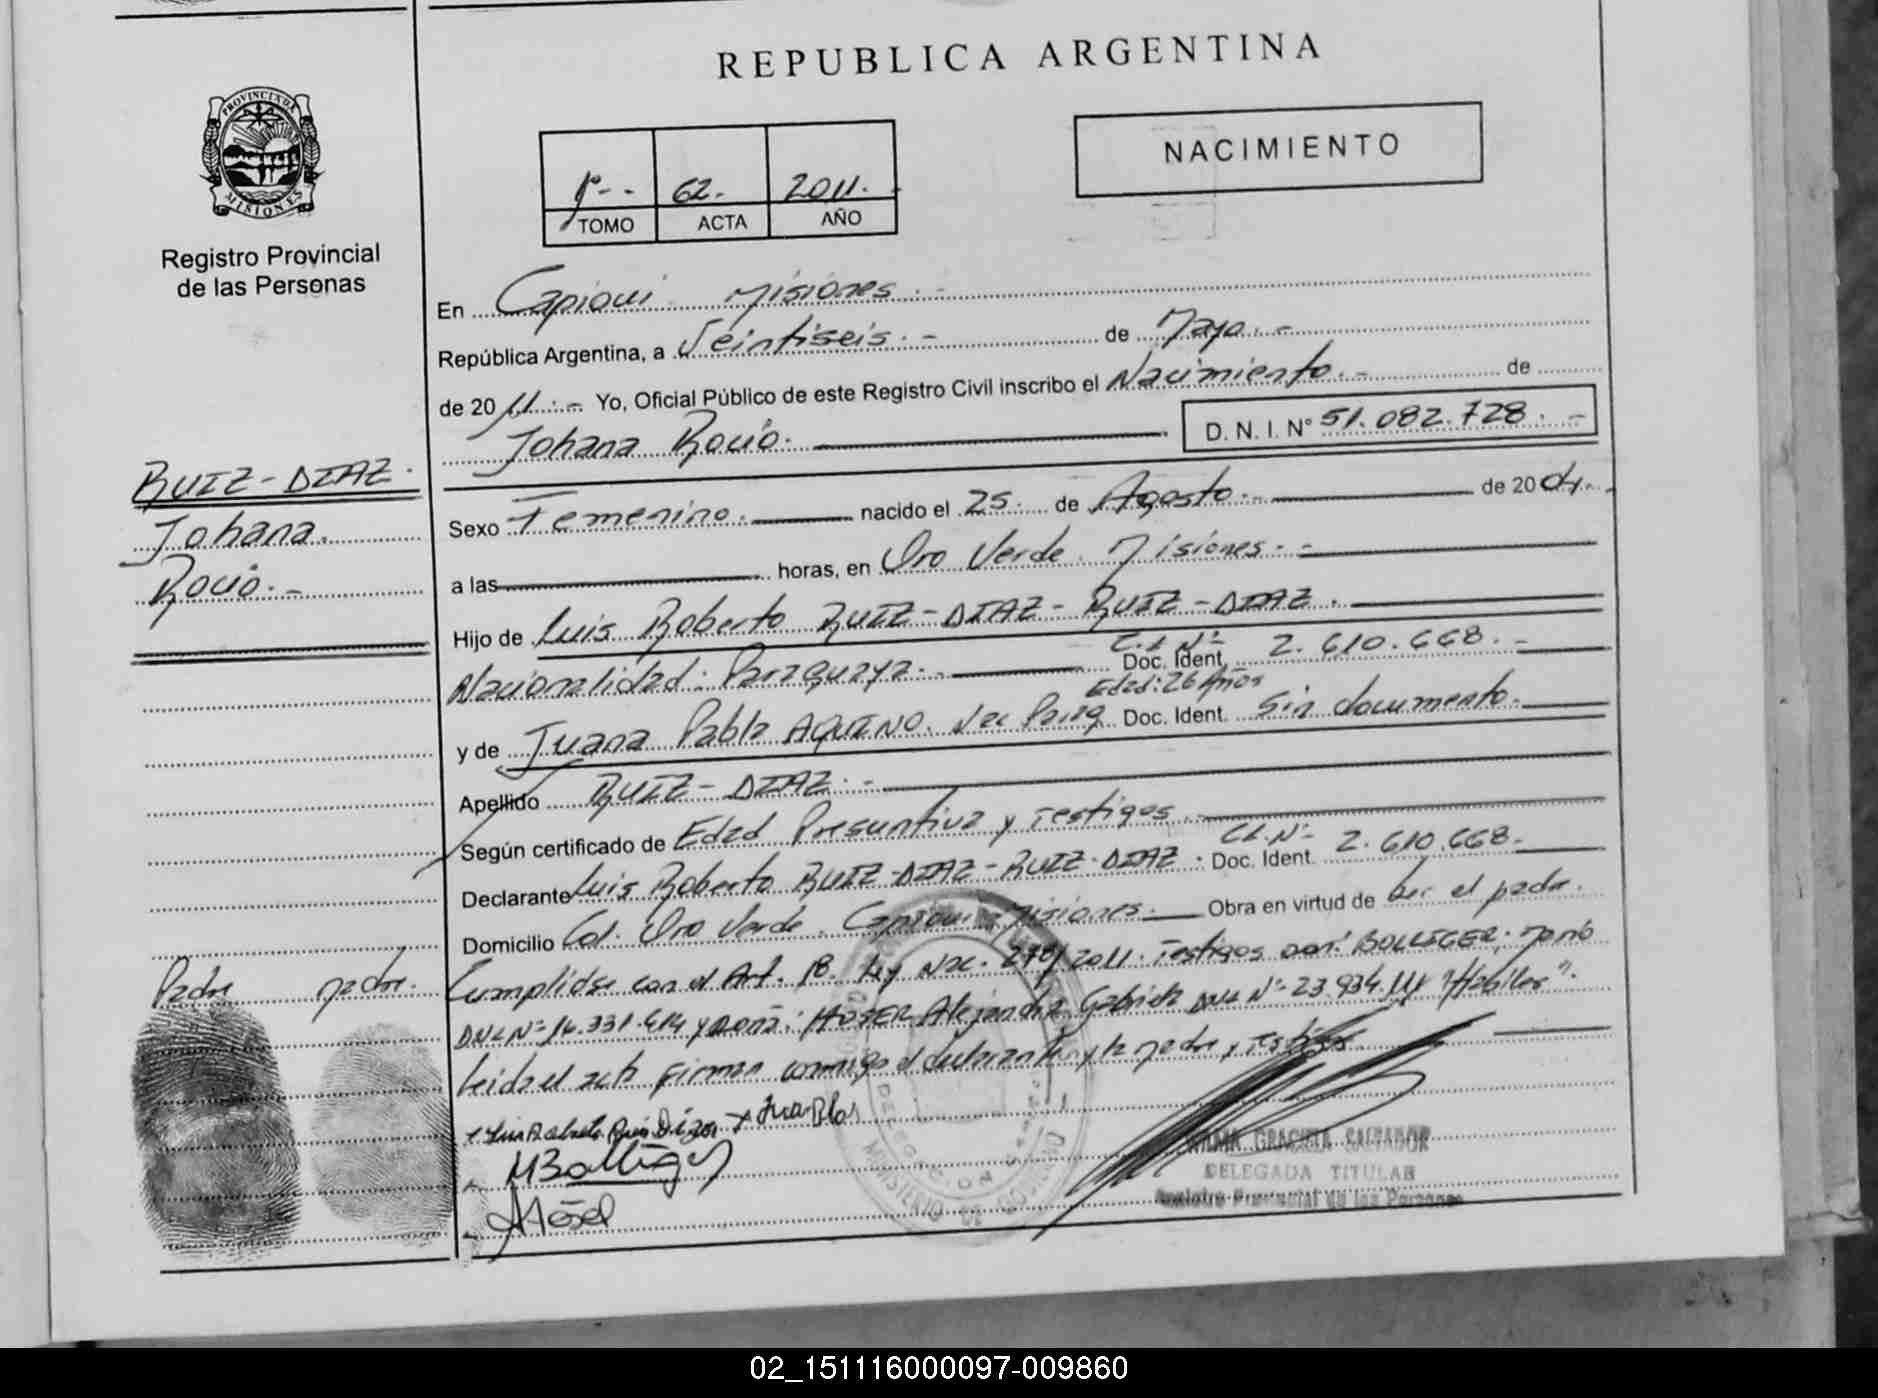 REPUBLICA ARGENTINA
PROVINCIA DE
MISIONES
Registro Provincial
de las Personas
1º - - 62.- 2011.-
TOMO ACTA AÑO
NACIMIENTO
En Capioui Misiones.-
República Argentina, a Veintiseis.- de Mayo.-
de 2011.- Yo, Oficial Público de este Registro Civil inscribo el Nacimiento.- de
Johana Rocío. D. N. I. Nº 51.082.728.-
RUIZ-DIAZ.
Johana.
Rocio.-
Sexo Femenino. nacido el 25 de Agosto.- de 2004.-
a las horas, en Oro Verde. Misiones.-
Hijo de Luis Roberto RUIZ-DIAZ-RUIZ-DIAZ.
Nacionalidad: Paraguaya.- Doc. Ident. C.I. Nº 2.610.668.-
Edad: 26 Años
y de Juana Pabla AQUINO. Nac Parag Doc. Ident. Sin documento.-
Apellido RUIZ-DIAZ.-
Según certificado de Edad Presuntiva y Testigos.
Declarante Luis Roberto RUIZ-DIAZ-RUIZ-DIAZ. Doc. Ident. C.I. Nº 2.610.668.-
Domicilio Col. Oro Verde. Capioui Misiones.- Obra en virtud de ser el padre.
Cumplidse con el Art. Ley Nac. 278/2011. Testigos don: BOLLIGER,
DNI Nº 16.331.414 y doña: HOSER Alejandra Gabriela DNI Nº 23.934. "Habiles".
Leida el acta firman conmigo el declarante y la madre y testigos
Padre madre.
Luis Roberto Ruis Dias
MBolliger
AHösel
DELEGACION
MINISTERIO DE GOBIERNO
GRACIELA SALVADOR
DELEGADA TITULAR
Registro Provincial de las Personas
02_151116000097-009860